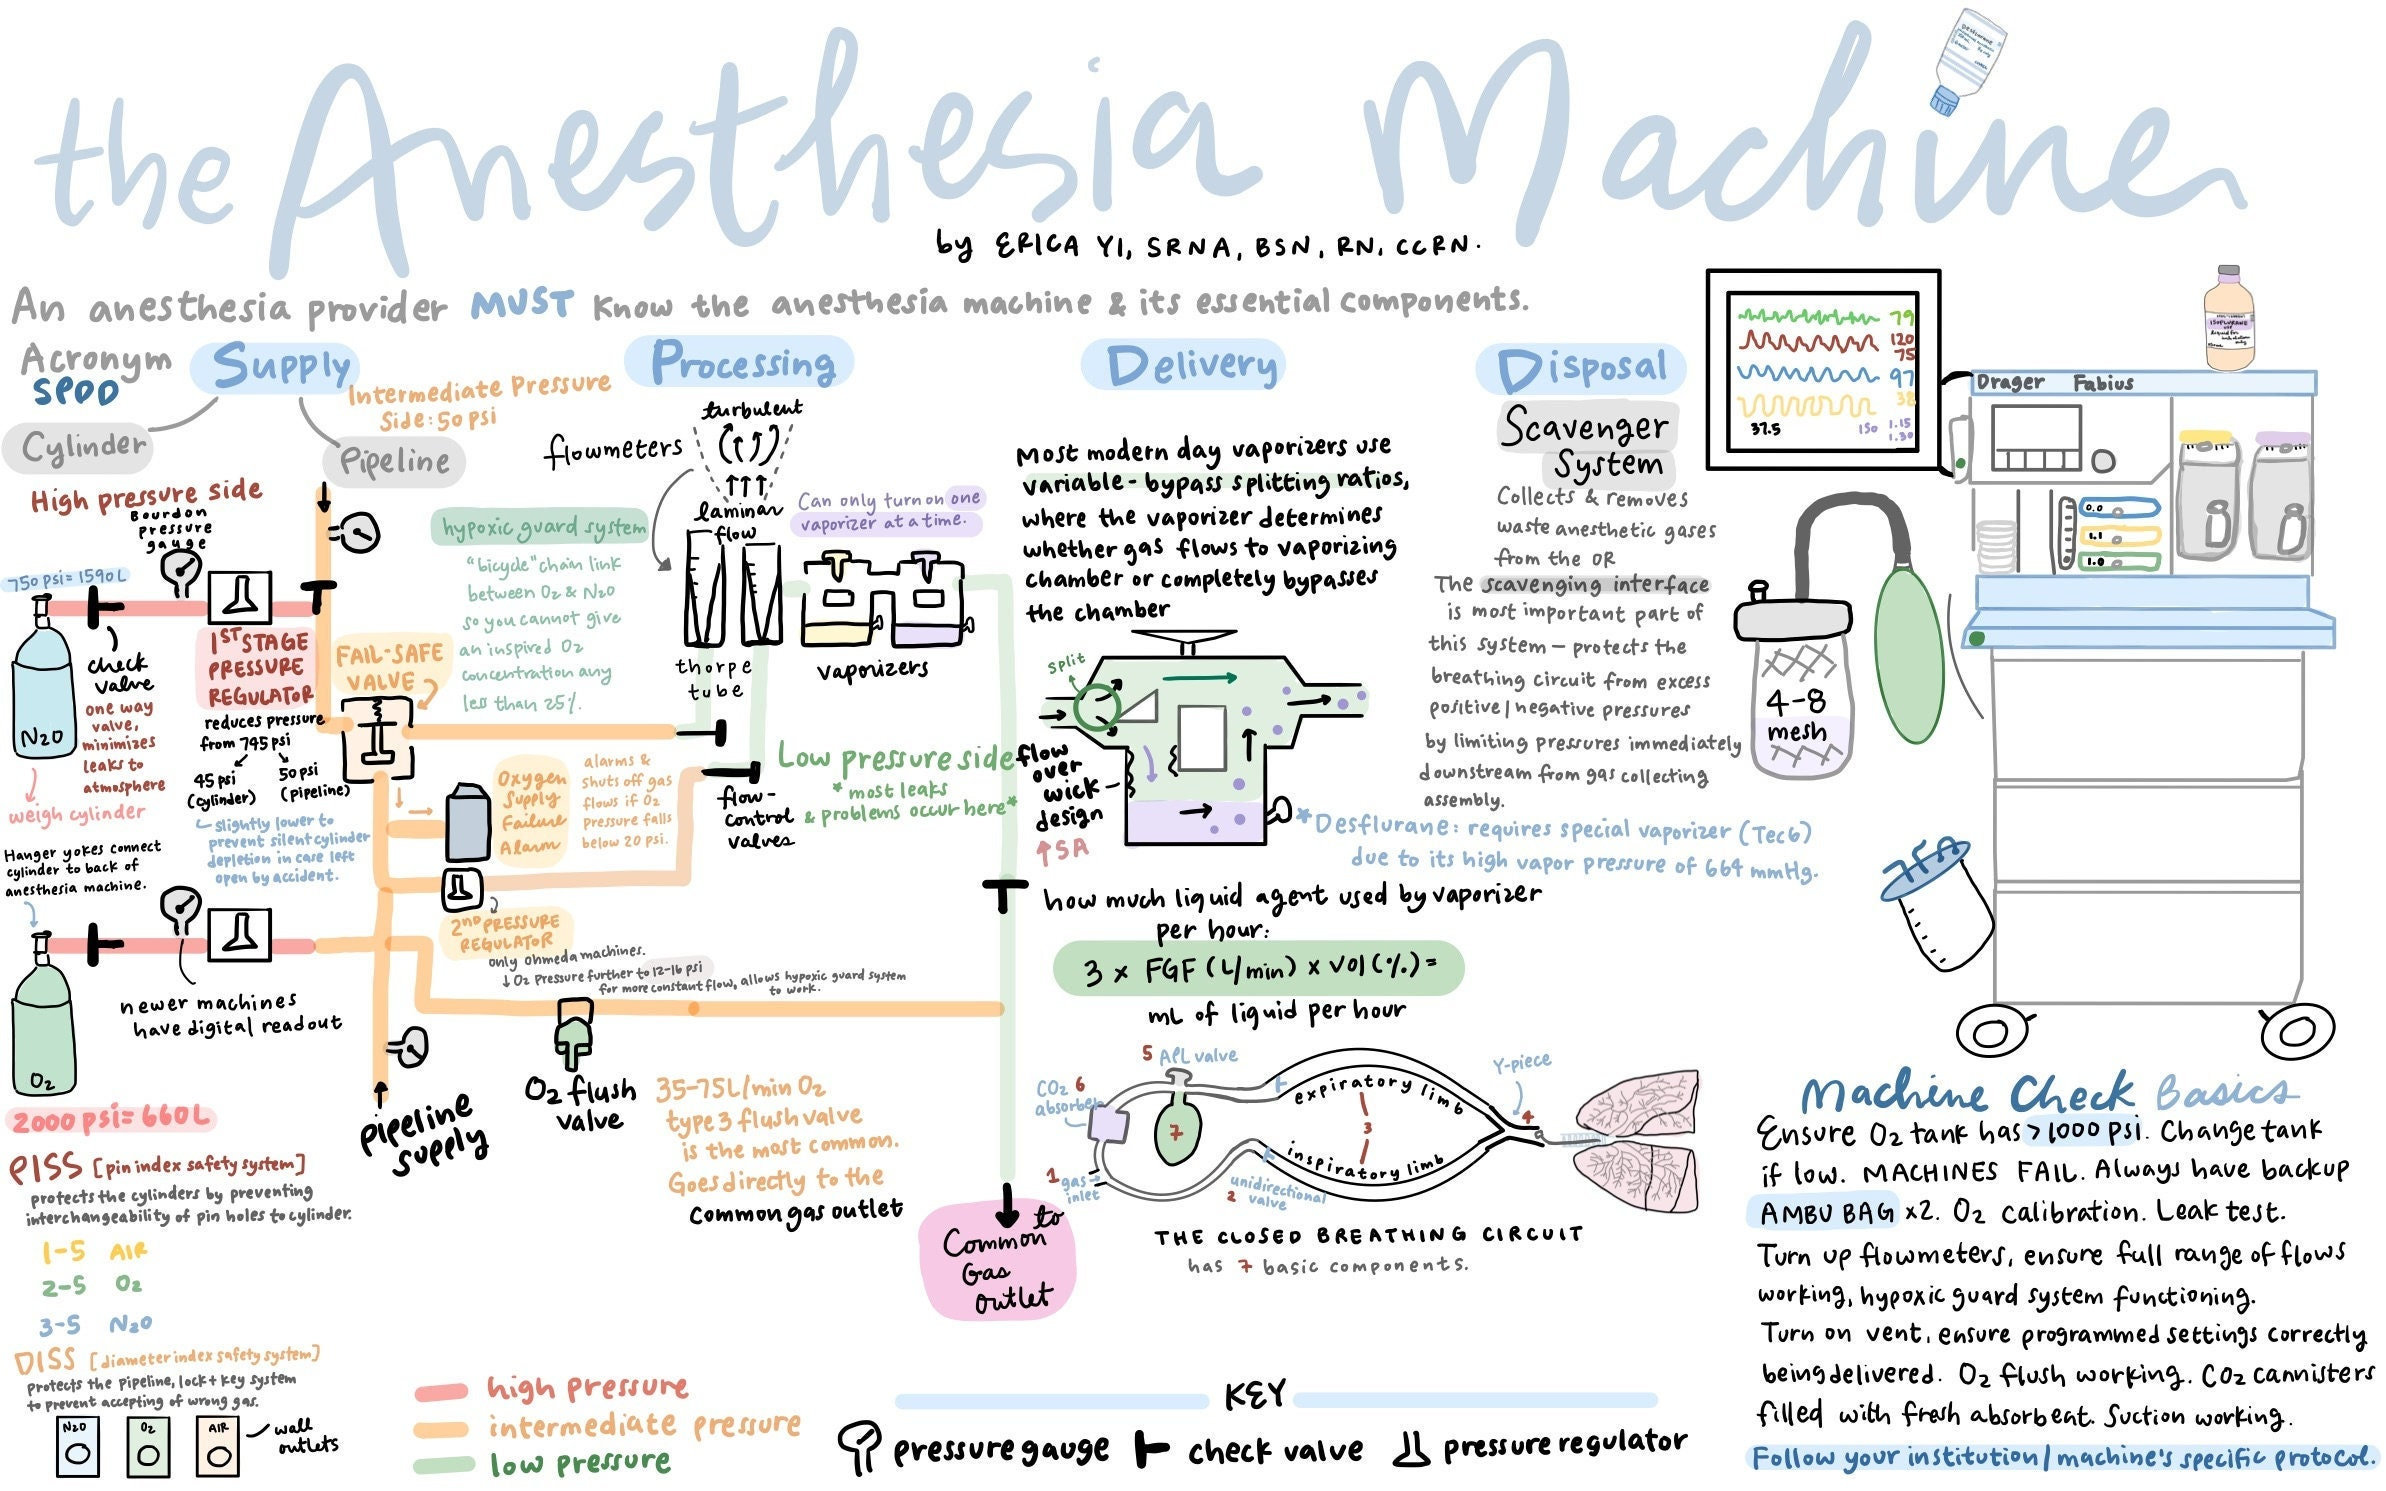 the Anesthesia Machine
by ERICA YI, SRNA, BSN, RN, CCRN.
An anesthesia provider MUST know the anesthesia machine & its essential components.
Acronym
SPDD
Supply
Cylinder
Pipeline
High pressure side
Bourdon
pressure
gauge
750 psi = 1590 L
N2O
weigh cylinder
check
valve
one way
valve,
minimizes
leaks to
atmosphere
1ST STAGE
PRESSURE
REGULATOR
reduces pressure
from 745 psi
45 psi
(cylinder)
50 psi
(pipeline)
slightly lower to
prevent silent cylinder
depletion in case left
open by accident.
Hanger yokes connect
cylinder to back of
anesthesia machine.
O2
newer machines
have digital readout
2000 psi = 660L
PISS [pin index safety system]
protects the cylinders by preventing
interchangeability of pin holes to cylinder.
1-5 AIR
2-5 O2
3-5 N2O
DISS [diameter index safety system]
protects the pipeline, lock + key system
to prevent accepting of wrong gas.
N2O
O2
AIR
wall
outlets
Intermediate Pressure
Side: 50 psi
FAIL-SAFE
VALVE
Oxygen
Supply
Failure
Alarm
alarms &
shuts off gas
flows if O2
pressure falls
below 20 psi.
2nd PRESSURE
REGULATOR
only ohmeda machines.
↓ O2 pressure further to 12-16 psi
for more constant flow, allows hypoxic guard system
to work.
pipeline
supply
O2 flush
valve
35-75L/min O2
type 3 flush valve
is the most common.
Goes directly to the
common gas outlet
Processing
turbulent
flowmeters
laminar
flow
hypoxic guard system
"bicycle" chain link
between O2 & N2O
so you cannot give
an inspired O2
concentration any
less than 25%.
Can only turn on one
vaporizer at a time.
thorpe
tube
vaporizers
flow-
control
valves
Low pressure side
* most leaks
& problems occur here *
to
Common
Gas
Outlet
Delivery
Most modern day vaporizers use
variable-bypass splitting ratios,
where the vaporizer determines
whether gas flows to vaporizing
chamber or completely bypasses
the chamber
split
flow
over
wick
design
↑SA
* Desflurane: requires special vaporizer (Tec6)
due to its high vapor pressure of 664 mmHg.
how much liquid agent used by vaporizer
per hour:
3 x FGF (L/min) x vol (%) =
mL of liquid per hour
5 APL valve
CO2 6
absorber
7
1 gas
inlet
expiratory limb
3
inspiratory limb
unidirectional
2 valve
Y-piece
4
THE CLOSED BREATHING CIRCUIT
has 7 basic components.
Disposal
Scavenger
System
Collects & removes
waste anesthetic gases
from the OR
The scavenging interface
is most important part of
this system - protects the
breathing circuit from excess
positive/negative pressures
by limiting pressures immediately
downstream from gas collecting
assembly.
79
120
75
97
38
37.5
150
1.15
1.30
ISOFLURANE
Drager Fabius
0.0
1.1
1.0
4-8
mesh
Machine Check Basics
Ensure O2 tank has >1000 psi. Change tank
if low. MACHINES FAIL. Always have backup
AMBU BAG x2. O2 calibration. Leak test.
Turn up flowmeters, ensure full range of flows
working, hypoxic guard system functioning.
Turn on vent, ensure programmed settings correctly
being delivered. O2 flush working. CO2 cannisters
filled with fresh absorbent. Suction working.
Follow your institution/machine's specific protocol.
high pressure
intermediate pressure
low pressure
KEY
pressure gauge
check valve
pressure regulator